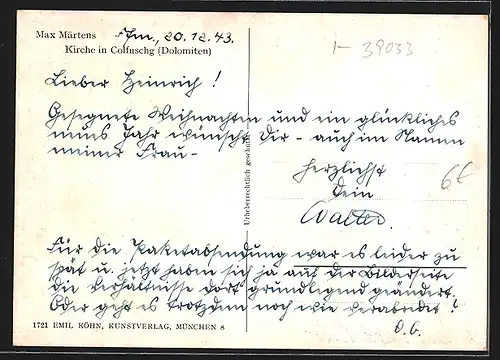 Max Märtens
Ffm., 20.12.43.
Kirche in Colfuschg (Dolomiten)
1- 39033
Lieber Heinrich!
Gesegnete Weihnachten und ein glückliches
neues Jahr wünscht Dir - auch im Namen
meiner Frau -
herzlichst
Dein
Walter.
6€
Urheberrechtlich geschützt
Für die Paketabsendung war es leider zu
spät u. jetzt haben sich ja auf der Bilderseite
die Verhältnisse dort grundlegend geändert.
Oder geht es trotzdem noch wie verabredet?
D.O.
1721 EMIL KÖHN, KUNSTVERLAG, MÜNCHEN 8